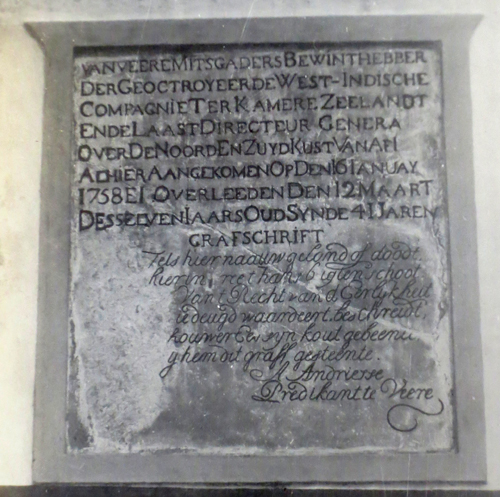 VAN VEERE MITSGADERS BEWINTHEBBER
DER GEOCTROYEERDE WEST-INDISCHE
COMPAGNIE TER KAMERE ZEELANDT
ENDE LAAST DIRECTEUR GENERA
OVER DE NOORD EN ZUYD KUST VAN AFI
ACHIER AANGEKOMEN OP DEN 16 IANUAY
1758 EN OVERLEEDEN DEN 12 MAART
DESSELVEN IAARS OUD SYNDE 41 JAREN
GRAFSCHRIFT
Iets hier naauw geland of doodt
hier in
Recht van d
deugd waardeert, beschreidt,
syn kout gebeente
hem dit graff gesteente.
Andriesse
Predikant te Veere